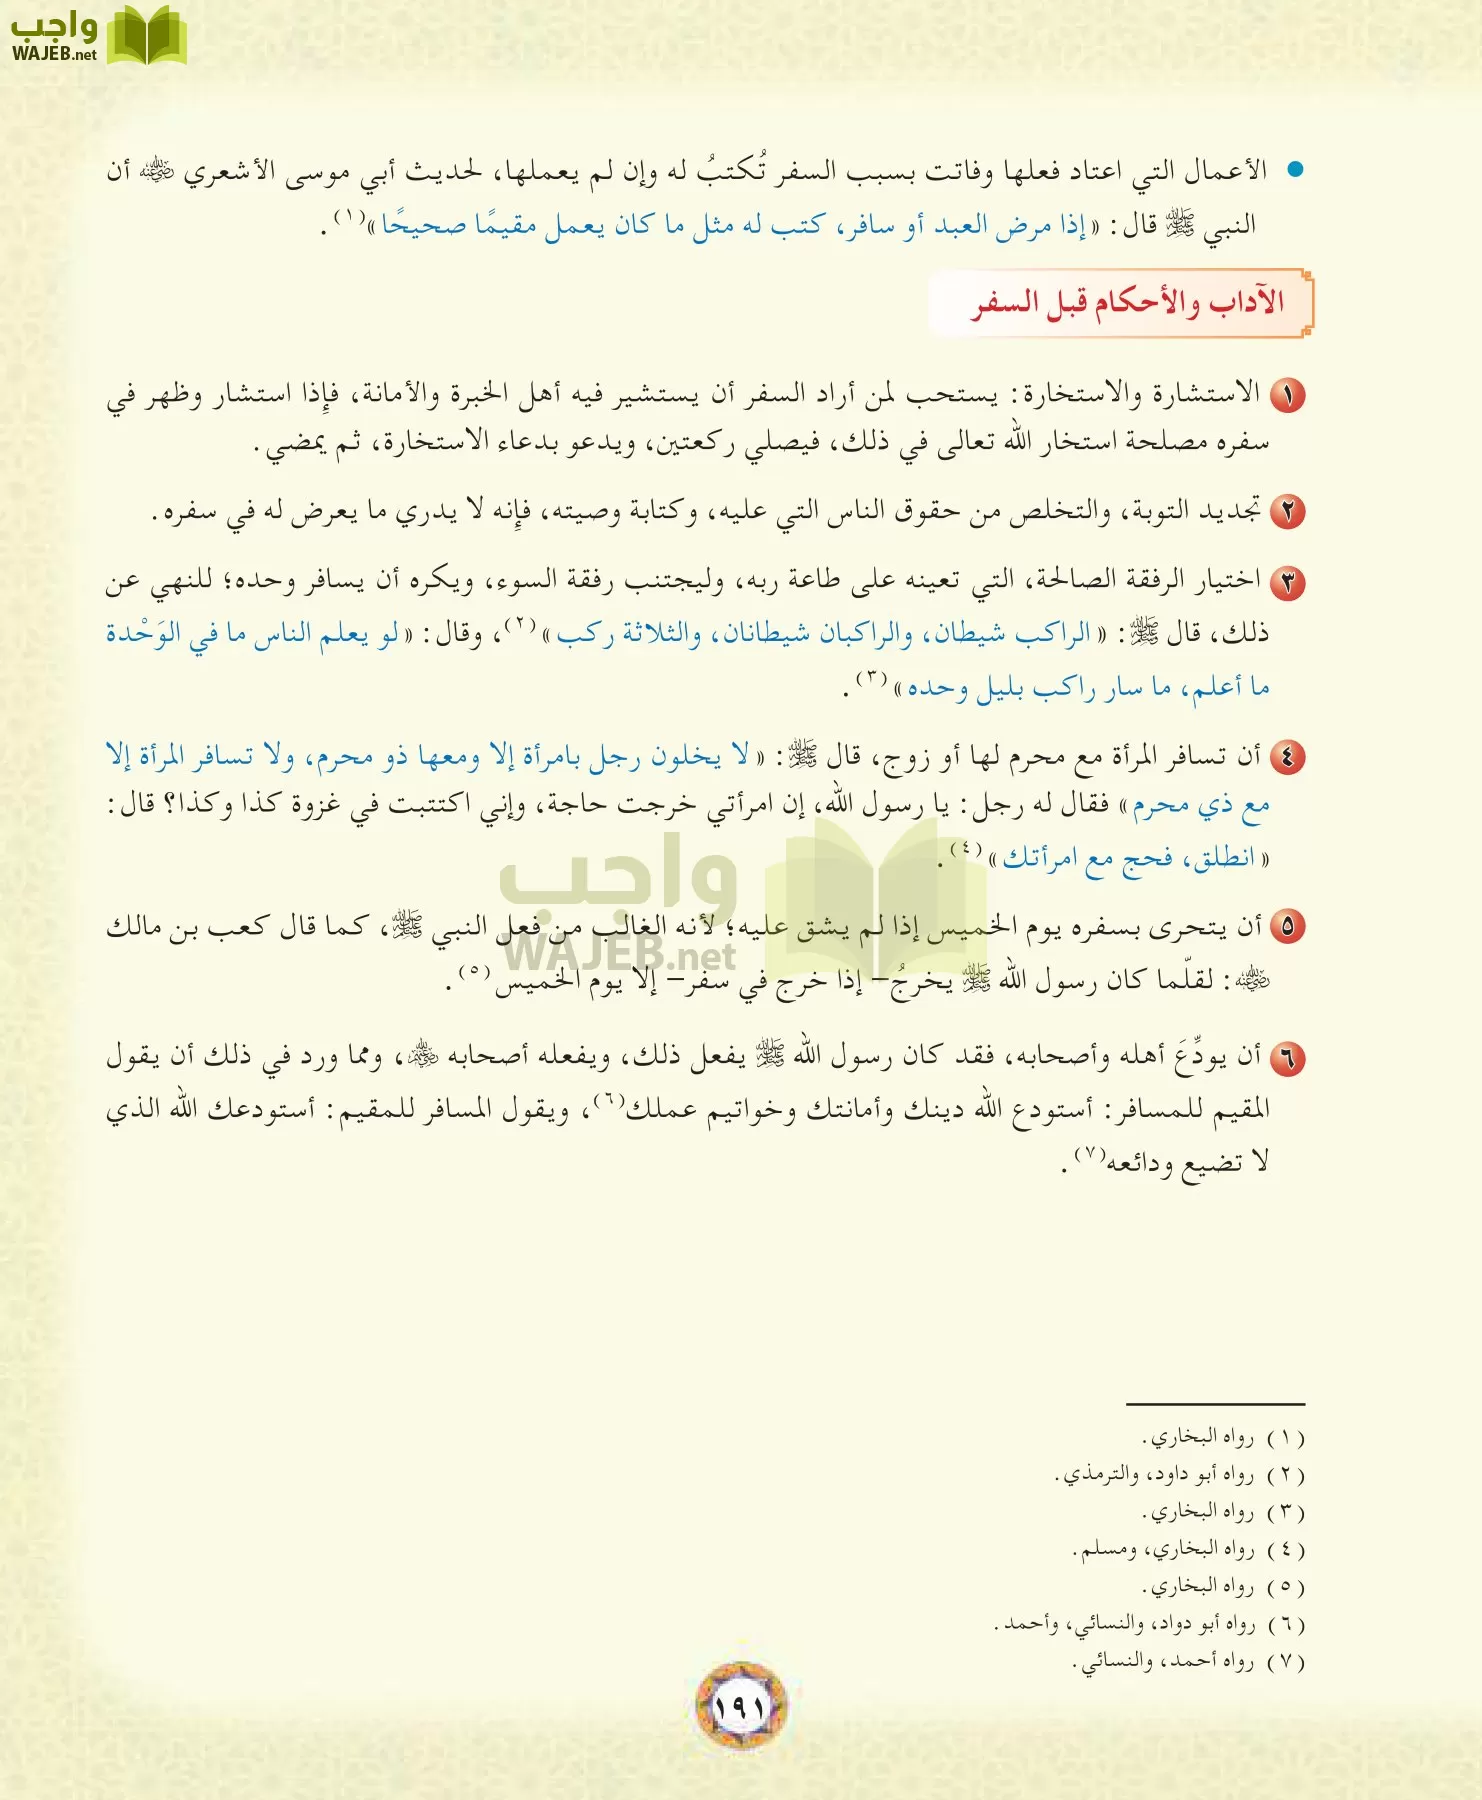 واجب
WAJEB.net
• الأعمال التي اعتاد فعلها وفاتت بسبب السفر تُكتبُ له وإن لم يعملها، لحديث أبي موسى الأشعري رضي الله عنه أن
النبي ﷺ قال: «إذا مرض العبد أو سافر، كتب له مثل ما كان يعمل مقيمًا صحيحًا»(١).
الآداب والأحكام قبل السفر
١ الاستشارة والاستخارة: يستحب لمن أراد السفر أن يستشير فيه أهل الخبرة والأمانة، فإذا استشار وظهر في
سفره مصلحة استخار الله تعالى في ذلك، فيصلي ركعتين، ويدعو بدعاء الاستخارة، ثم يمضي.
٢ تجديد التوبة، والتخلص من حقوق الناس التي عليه، وكتابة وصيته، فإنه لا يدري ما يعرض له في سفره.
٣ اختيار الرفقة الصالحة، التي تعينه على طاعة ربه، وليجتنب رفقة السوء، ويكره أن يسافر وحده؛ للنهي عن
ذلك، قال ﷺ: «الراكب شيطان، والراكبان شيطانان، والثلاثة ركب»(٢)، وقال: «لو يعلم الناس ما في الوَحْدة
ما أعلم، ما سار راكب بليل وحده»(٣).
٤ أن تسافر المرأة مع محرم لها أو زوج، قال ﷺ: «لا يخلون رجل بامرأة إلا ومعها ذو محرم، ولا تسافر المرأة إلا
مع ذي محرم» فقال له رجل: يا رسول الله، إن امرأتي خرجت حاجة، وإني اكتتبت في غزوة كذا وكذا؟ قال:
«انطلق، فحج مع امرأتك»(٤).
واجب
WAJEB.net
٥ أن يتحرى بسفره يوم الخميس إذا لم يشق عليه؛ لأنه الغالب من فعل النبي ﷺ، كما قال كعب بن مالك
رضي الله عنه: لقلّما كان رسول الله ﷺ يخرجُ- إذا خرج في سفر- إلا يوم الخميس(٥).
٦ أن يودِّعَ أهله وأصحابه، فقد كان رسول الله ﷺ يفعل ذلك، ويفعله أصحابه رضي الله عنهم، ومما ورد في ذلك أن يقول
المقيم للمسافر: أستودع الله دينك وأمانتك وخواتيم عملك(٦)، ويقول المسافر للمقيم: أستودعك الله الذي
لا تضيع ودائعه(٧).
(١) رواه البخاري.
(٢) رواه أبو داود، والترمذي.
(٣) رواه البخاري.
(٤) رواه البخاري، ومسلم.
(٥) رواه البخاري.
(٦) رواه أبو دواد، والنسائي، وأحمد.
(٧) رواه أحمد، والنسائي.
١٩١